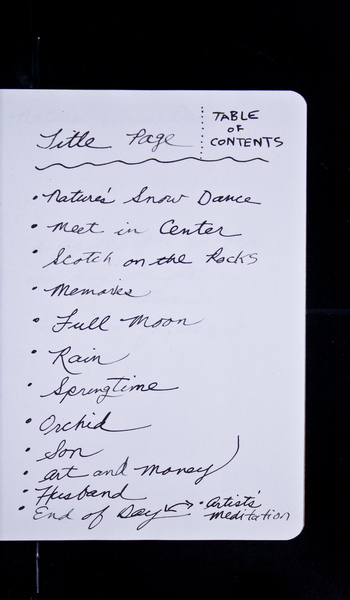 Title Page
TABLE
OF
CONTENTS
• Nature's Snow Dance
• Meet in Center
• Scotch on the Rocks
• Memories
• Full Moon
• Rain
• Springtime
• Orchid
• Son
• Art and Money
• Husband
• End of Day
• Artist's
meditation